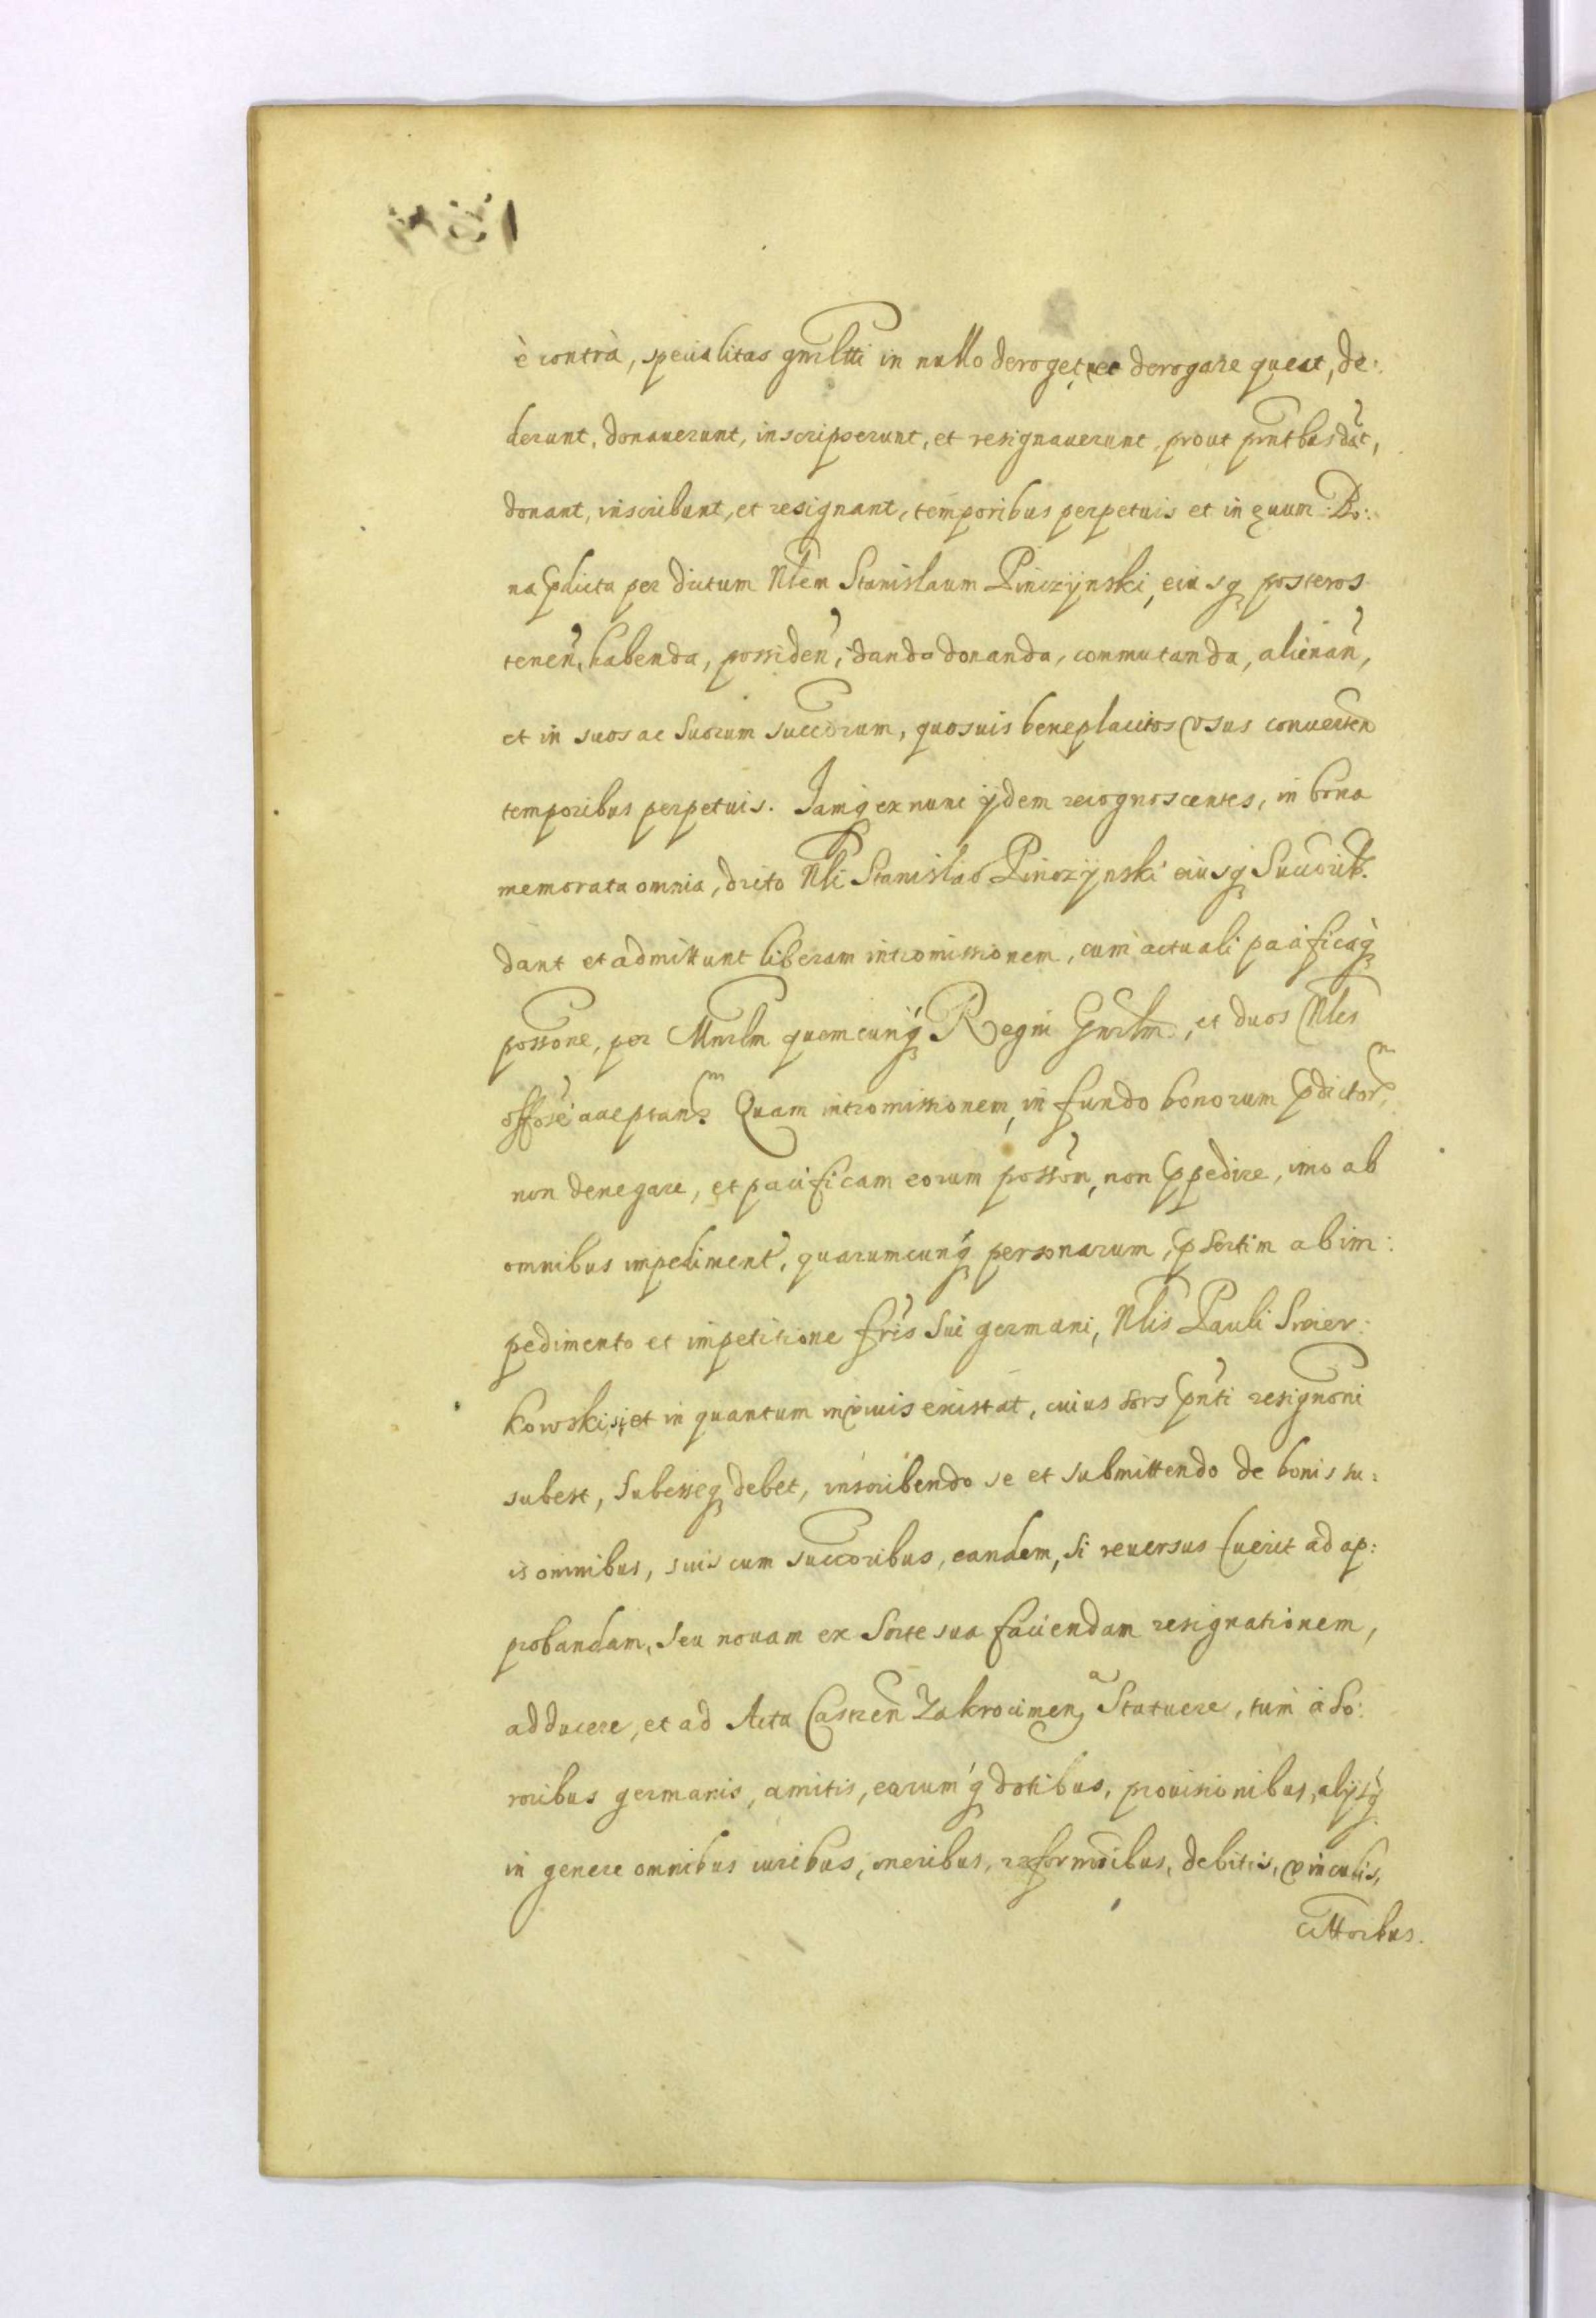 è contrà, specialitas gnrltti in nullo deroget, nec derogare queat, de:
derunt, donauerunt, inscripserunt, et resignauerunt, prout pntbus dat,
donant, inscribunt, et resignant, temporibus perpetuis et in æuum Bo:
na pdicta per dictum Nlem Stanislaum Pinczÿnski, eiusq posteros
tenen, habenda, possiden, danda donanda, commutanda, alienan,
et in suos ac suorum succorum, quosuis beneplacitos vsus conuerten
temporibus perpetuis. Iamq ex nunc ijdem recognoscentes, in bona
memorata omnia, dicto Nli Stanislao Pinczÿnski eiusq Succorib.
dant et admittunt liberam intromissionem, cum actuali pacificaq
possone, per Mnrlm quemcunq Regni Gnrlm, et duos Nles
offose acceptan. Quam intromissionem, in fundo bonorum pdictor,
non denegare, et pacificam eorum posson, non ppedire, imo ab
omnibus impediment, quarumcunq personarum, psertim ab im:
pedimento et impetitione fris sui germani, Nlis Pauli Swier:
kowski, si et in quantum in viuis existat, cuius sors pnti resignoni
subest, subesseq debet, inscribendo se et submittendo de bonis su:
is omnibus, suis cum succoribus, eandem, si reuersus fuerit ad ap:
probandam, seu nouam ex sorte sua faciendam resignationem,
adducere, et ad Acta Castren Zakrocimen Statuere, tum à so:
roribus germanis, amitis, earumq dotibus, prouisionibus, alijsq
in genere omnibus iuribus, oneribus, reformoibus, debitis, vinculis,
cittoribus.